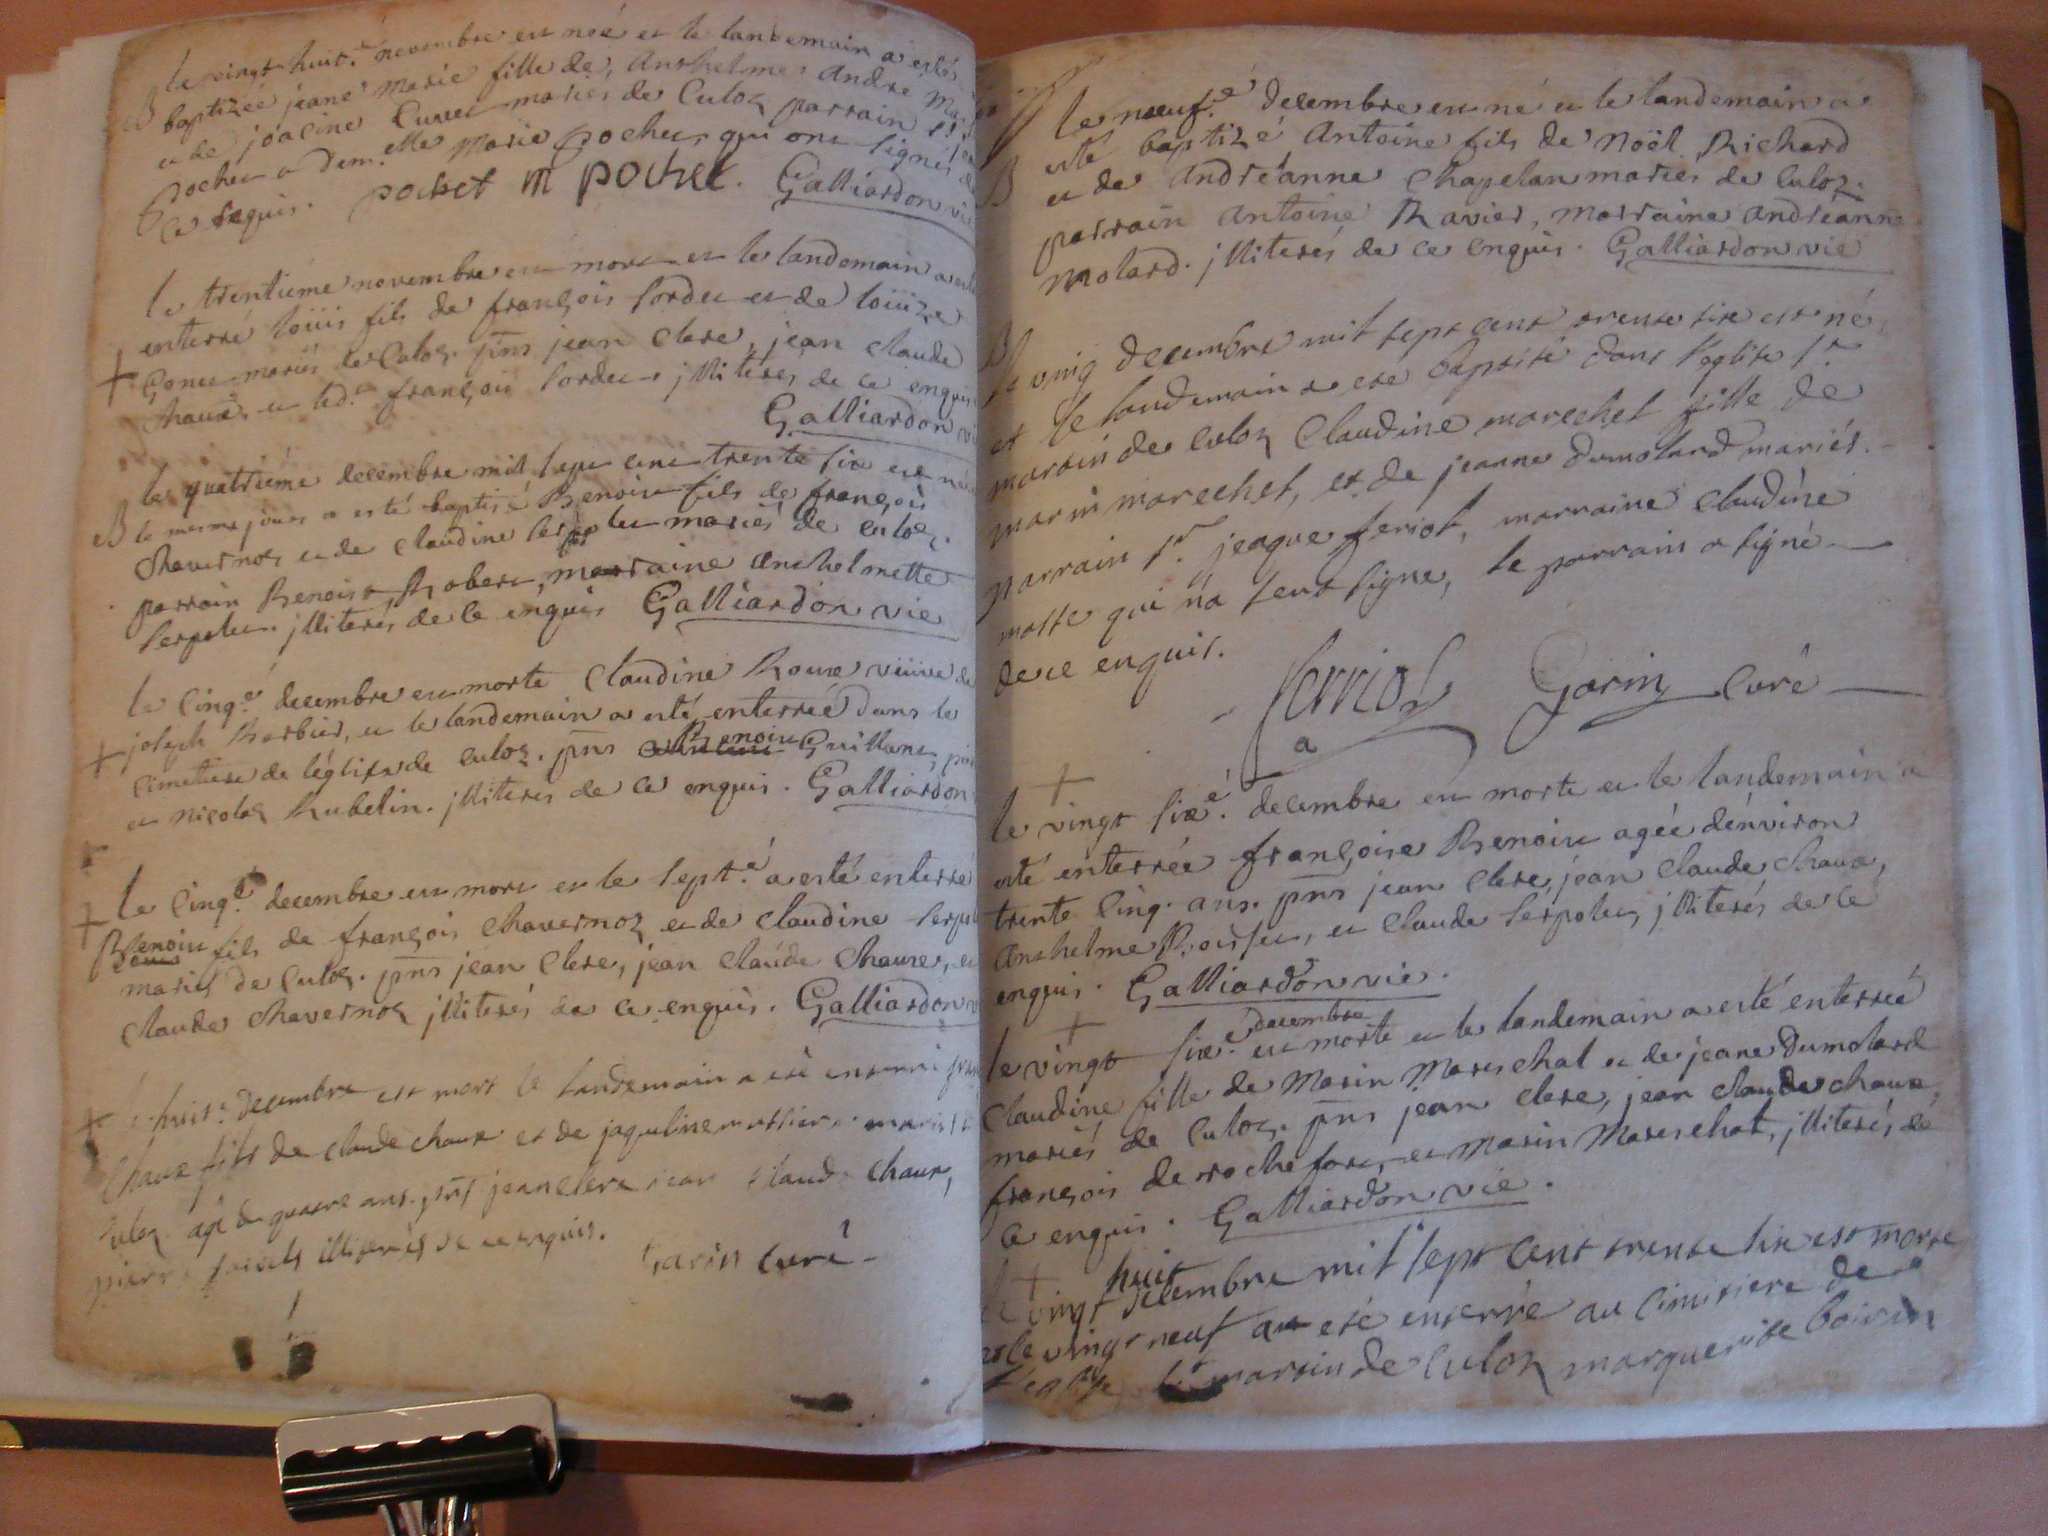 le vingt huit.e novembre est née et le landemain a esté
B baptizée jeane Marie fille de Anthelme André
et de joacine Cuvet mariés de Culoz parrain Sr
pochet et Dem.elle Marie pochet, qui ont signés
Ce requis. pochet m pochet. Galliardon vic
le trentiéme novembre est mort et le landemain a esté
enterré loüis fils de françois sordet et de loüize
+ Gonet mariés de Culoz. pñs jean Clerc, jean Claude
Chaux, et led.t françois sordet, jlliterés de ce enquis
Galliardon vi
le quatriéme decembre mil sept cent trente six est né
B le mesme jour a esté baptisé Benoist fils de françois
Chavernoz et de Claudine serpolet mariés de Culoz.
parrain Benoist Robert, marraine Anthelmette
serpolet. jlliterés de ce enquis Galliardon vic
le Cinq.e decembre est morte Claudine Roux viüve de
+ joseph Barbier, et le landemain a esté enterrée dans le
Cimetiere de léglise de Culoz. pñs Benoist Guillant,
et Nicolas Rubelin. jlliterés de ce enquis. Galliardon
+ le Cinq.e decembre est mort et le sept.e a esté enterré
Benoist fils de françois Chavernoz et de Claudine serpol
mariés de Culoz. pñs jean Clerc, jean Claude Chaux, et
Claude Chavernoz jlliterés de ce enquis. Galliardon v
+ le huit.e decembre est mort le landemain a été enterré
Chaux fils de claude chaux et de jaqueline mariés
Culoz agé de quatre ans. pñs jean clerc jean Claude chaux,
pierre illiterés de ce enquis.
Garin Curé
le neuf.e decembre est né et le landemain a
B esté baptizé Antoine fils de Noël Richard
et de Andréanne Chapelan mariés de Culoz.
parrain Antoine Ravier, marraine Andréanne
Molard. jlliterés de ce enquis. Galliardon vic
B le ving decembre mil sept cent trente six est né
et le landemain a ete baptisé dans l'eglise st
martin de culoz Claudine marechet fille de
marin marechet, et de jeanne dumolard mariés.
parrain sr. jeaque feriot, marraine claudine
motte qui n'a seut signe, le parrain a signé
de ce enquis.
ferriot Garin Curé
+
le vingt six.e decembre est morte et le landemain a
esté enterrée françoise Benoist agée d'environ
trente Cinq. ans. pñs jean Clerc, jean Claude Chaux,
Anthelme, et Claude serpolet, jlliterés de ce
enquis. Galliardon vic.
+
le vingt six.e decembre est morte et le landemain a esté enterrée
Claudine fille de Marin Mareschal et de jeane Dumolard
mariés de Culoz. pñs jean Clerc, jean Claude Chaux,
françois de rochefort, et Marin Mareschat, jlliterés de
Ce enquis. Galliardon vic.
+ huit
le vingt decembre mil sept cent trente six est morte
et le vingt neuf a eté enterré au cimitiere de
l'eglise st martin de Culoz marguerite boirin